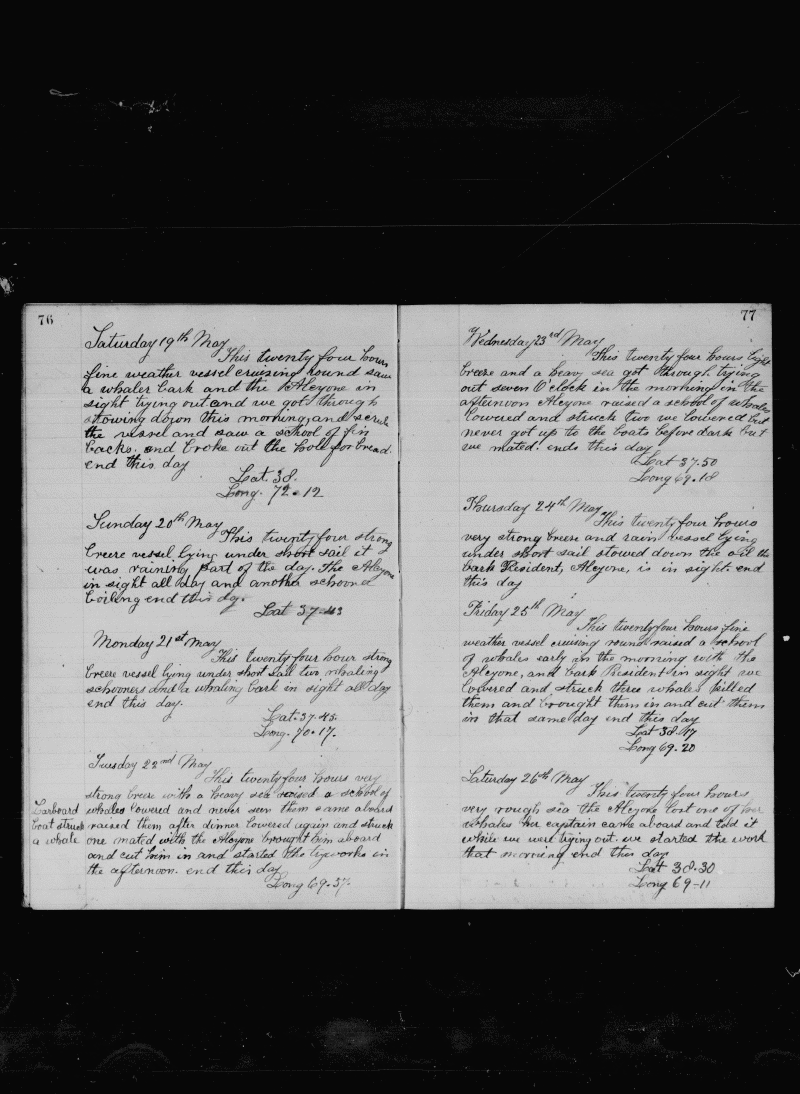 76
Saturday 19th May
This twenty four hours
fine weather vessel cruising round saw
a whaler bark and the Alcyone in
sight trying out and we got through
stowing down this morning, and scrub
the vessel and saw a school of fin
backs. and broke out the hold for bread.
end this day
Lat. 38.
Long. 72.12
Sunday 20th May
This twenty four strong
breeze vessel lying under short sail it
was raining part of the day. The Alcyone
in sight all day and another schooner
boiling end this day.
Lat 37-43
Monday 21st May
This twenty four hour strong
breeze vessel lying under short sail two whaling
schooners and a whaling bark in sight all day
end this day.
Lat. 37.45.
Long. 70.17.
Tuesday 22nd May
This twenty four hours very
strong breeze with a heavy sea raised a school of
whales lowered and never seen them came aboard
raised them after dinner lowered again and struck
one mated with the Alcyone brought him aboard
and cut him in and started the tryworks in
the afternoon. end this day
Long 69.37.
Larboard
boat struck
a whale
77
Wednesday 23rd May
This twenty four hours light
breeze and a heavy sea got through trying
out seven O'clock in the morning in the
afternoon Alcyone raised a school of whales
lowered and struck two we lowered but
never got up to the boats before dark but
we mated. ends this day
Lat 37.50
Long 69.18
Thursday 24th May
This twenty four hours
very strong breeze and rain vessel lying
under short sail stowed down the oil the
bark President, Alcyone, is in sight. end
this day
Friday 25th May
This twenty four hours fine
weather vessel cruising round raised a school
of whales early in the morning with the
Alcyone, and bark President in sight we
lowered and struck three whales killed
them and brought them in and cut them
in that same day end this day
Lat 38.17
Long 69.20
Saturday 26th May
This twenty four hours
very rough sea the Alcyone lost one of her
whales her captain came aboard and told it
while we were trying out. we started the work
that morning end this day
Lat 38.30
Long 69-11